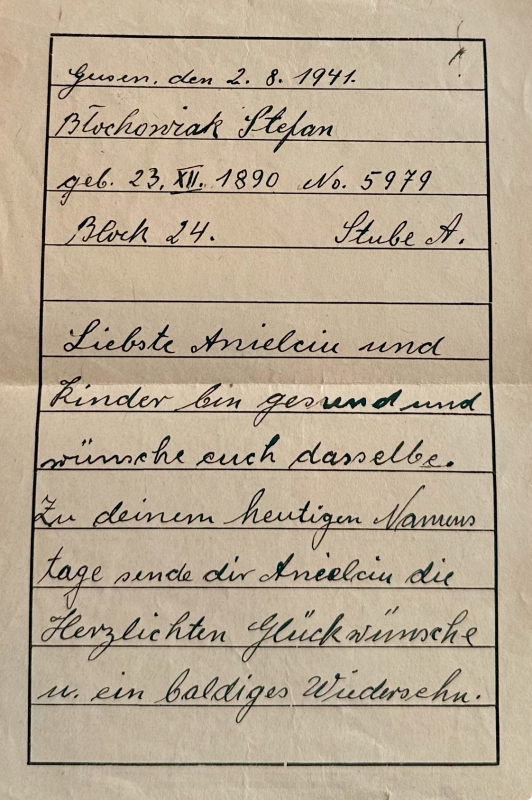 Gusen, den 2. 8. 1941.
Błochowiak Stefan
geb. 23. XII. 1890 No. 5979
Block 24. Stube A.
Liebste Anielciu und
Kinder bin gesund und
wünsche euch dasselbe.
Zu deinem heutigen Namens
tage sende dir Anielciu die
Herzlichten Glückwünsche
u. ein baldiges Wiedersehn.